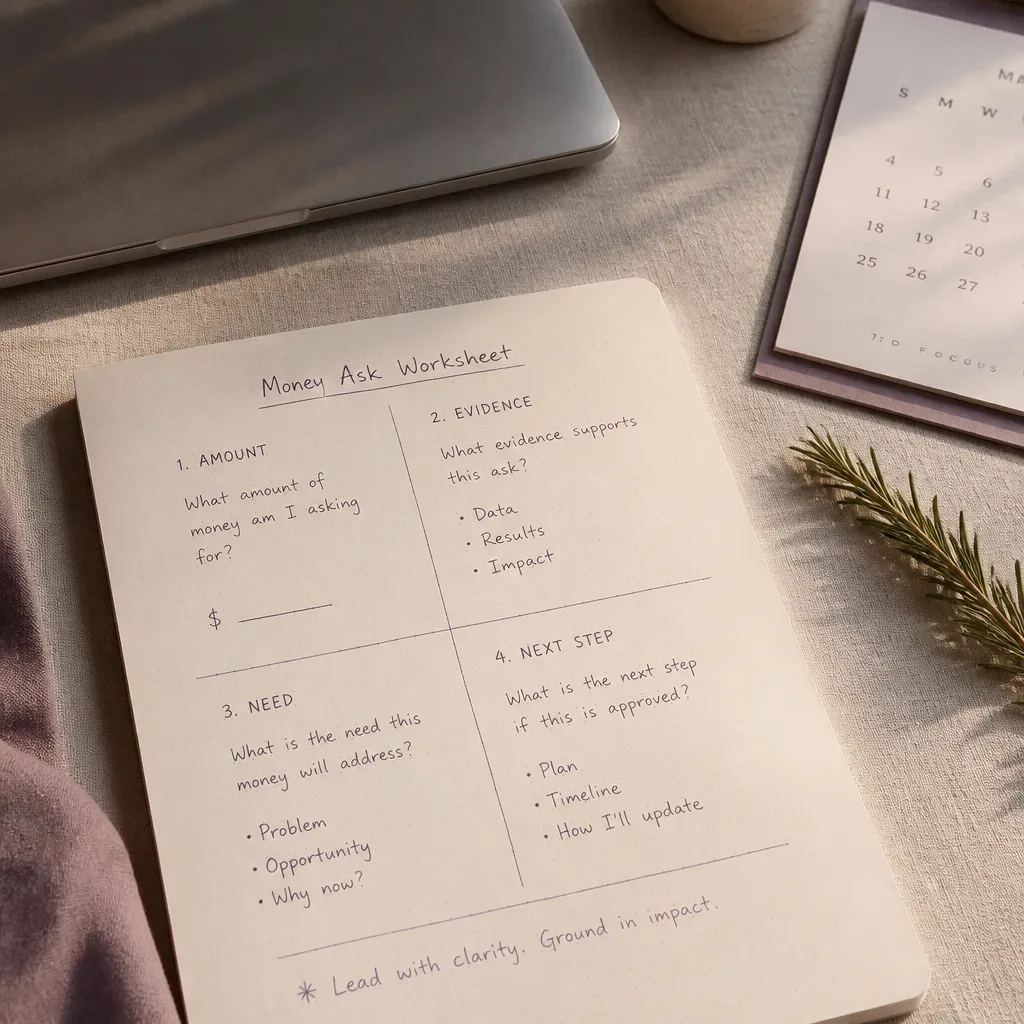 Money Ask Worksheet
1. AMOUNT
What amount of
money am I asking
for?
$
2. EVIDENCE
What evidence supports
this ask?
• Data
• Results
• Impact
3. NEED
What is the need this
money will address?
• Problem
• Opportunity
• Why now?
4. NEXT STEP
What is the next step
if this is approved?
• Plan
• Timeline
• How I'll update
* Lead with clarity. Ground in impact.
S M W
4 5 6
11 12 13
18 19 20
25 26 27